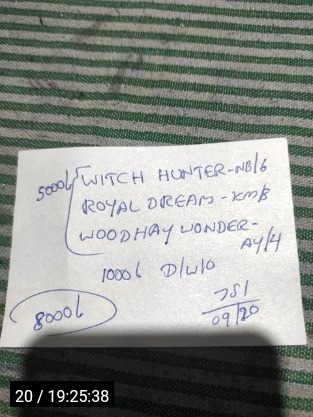 5000/ WITCH HUNTER-NB/6
ROYAL DREAM - KM/B
WOODHAY WONDER-
AY/H
1000/ D/W/O
8000/
751
09/20
20 / 19:25:38